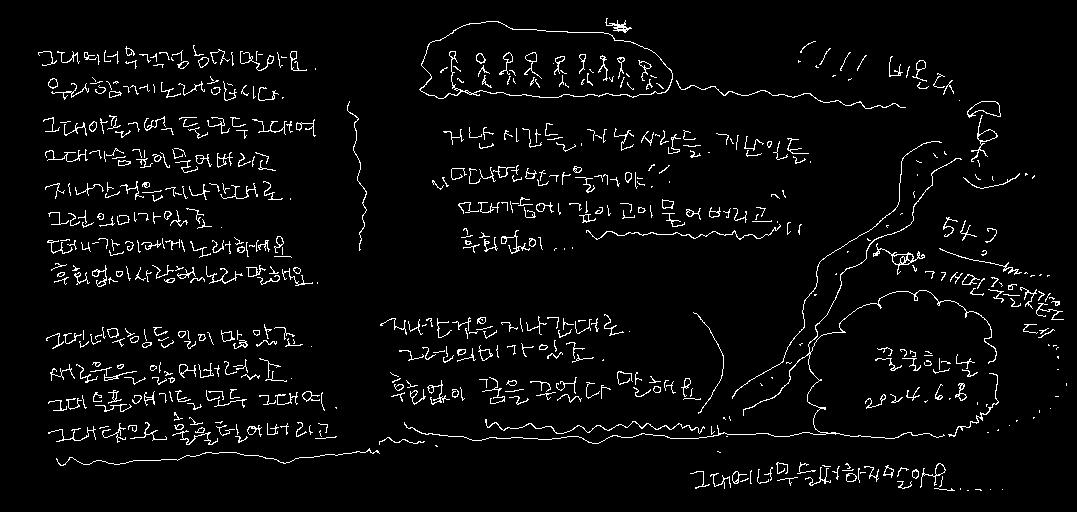 그대여 너무 걱정하지 말아요.
우리 함께 노래 합시다.
그대 아픈 기억 들 모두 그대여
그대 가슴 깊이 묻어 버리고
지나간 것은 지나간 대로.
그런 의미가 있죠
떠나간 이에게 노래 하세요
후회없이 사랑했노라 말해요.
그댄 너무 힘든 일이 많았죠.
새로움을 잃어 버렸죠.
그대 슬픈 얘기들 모두 그대여.
그대 탓으로 훌훌 털어 버리고
지난 시간들. 지난 사람들. 지난 일들.
만나면 반가울꺼야!!
그대 가슴에 깊이 고이 묻어 버리고
후회없이...
지나간 것은 지나간 대로.
그런 의미가 있죠.
후회없이 꿈을 꾸었다 말해요
!!!! 비온다.
54?
꿀꿀한 날
2024.6.8
그대여 너무 슬퍼하지 말아요